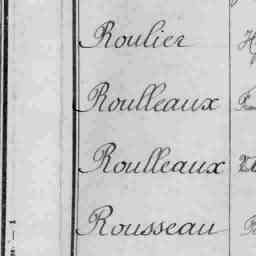 Roulier
Roulleaux
Roulleaux
Rousseau